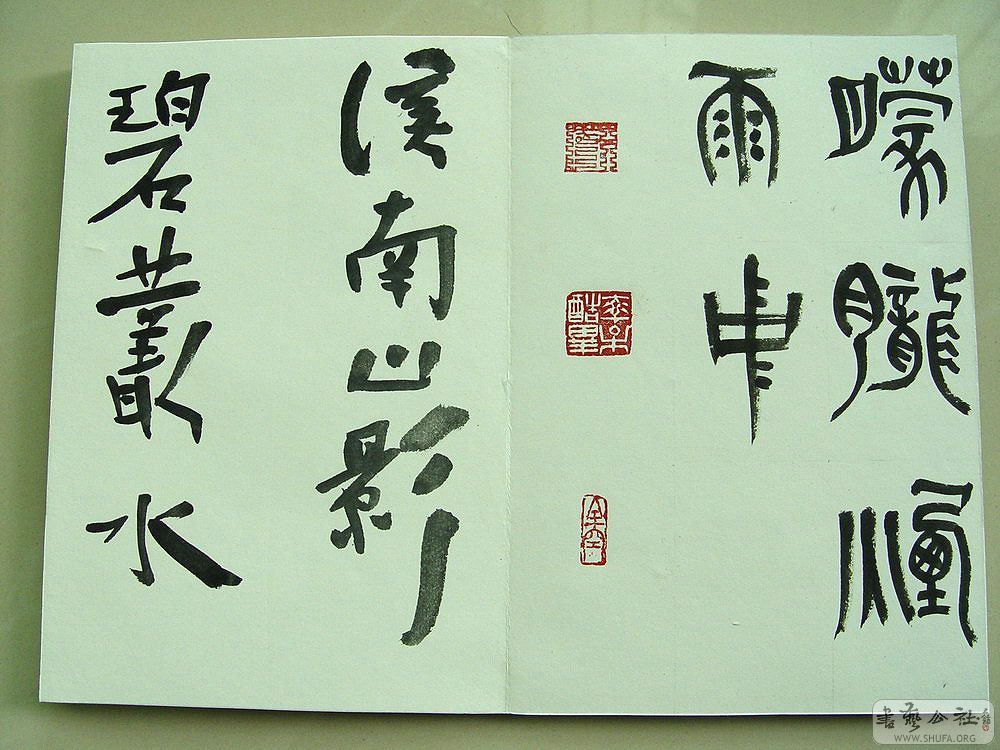 朦朧煙
雨中
溪南山影
碧叢水
書藝公社
WWW.SHUFA.ORG